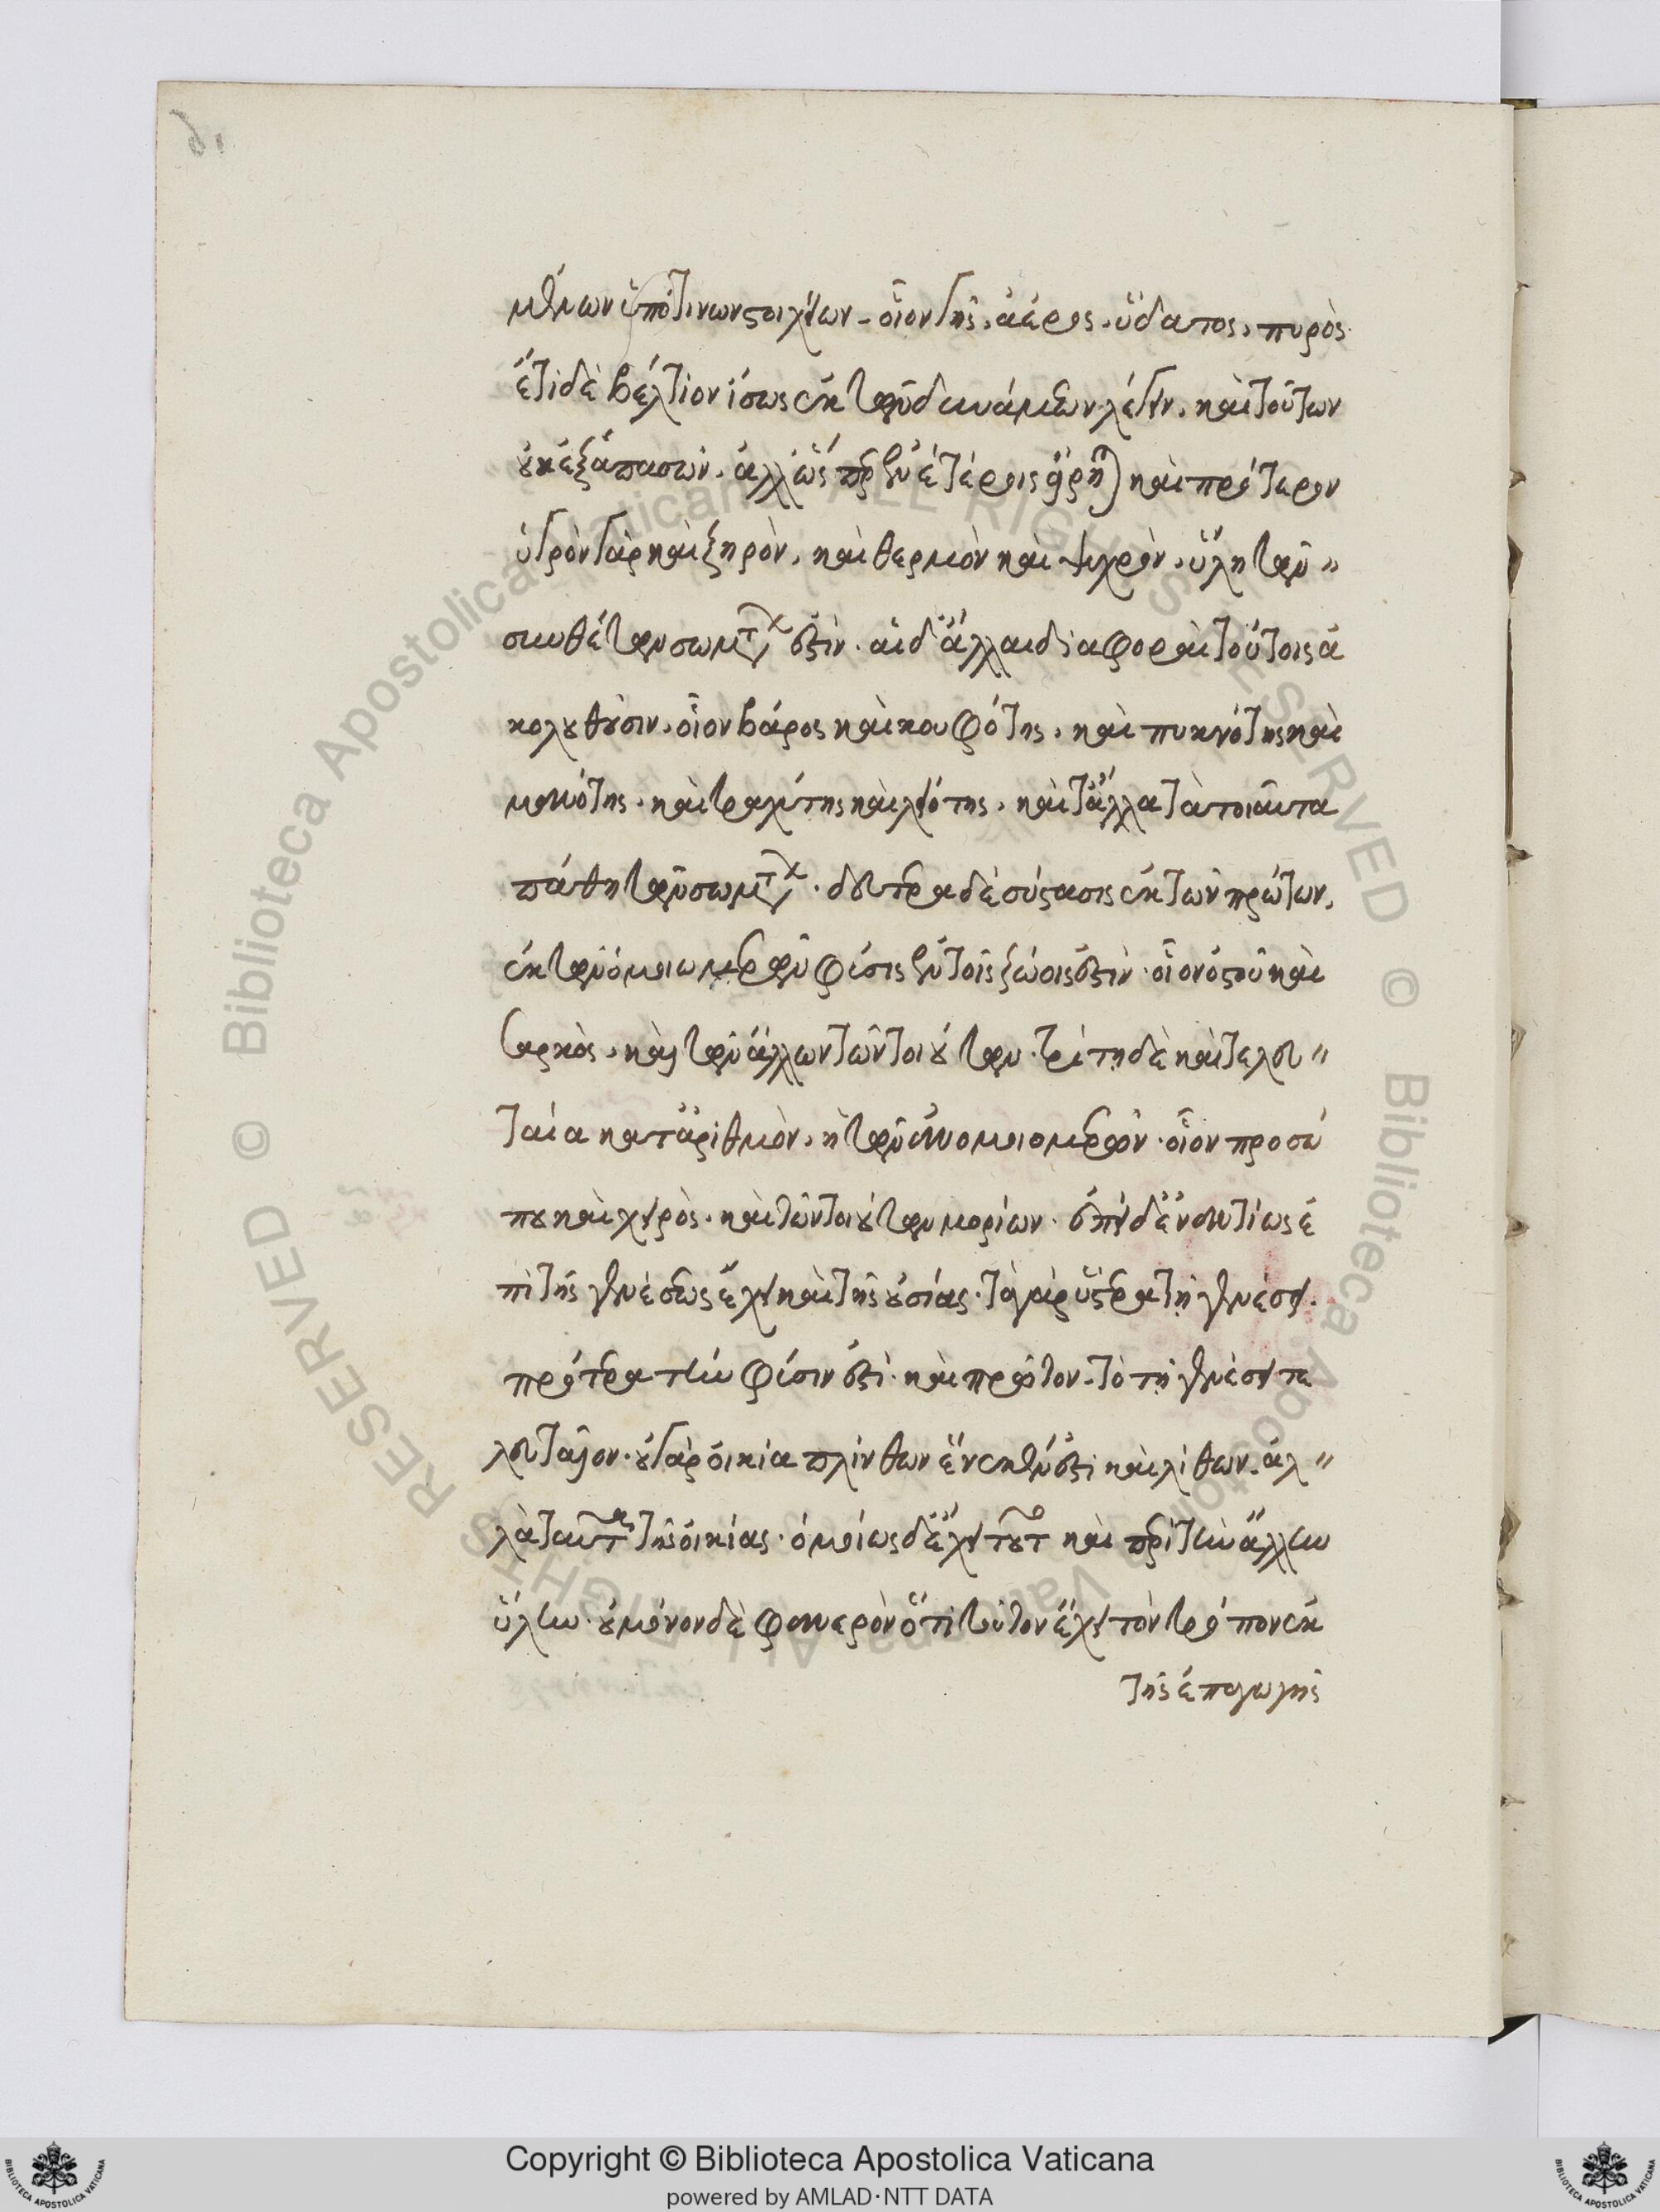 μένων ὑπό τινων στοιχείων. οἷον γῆς, ἀέρος, ὕδατος, πυρὸς.
ἔτι δὲ βέλτιον ἴσως ἐκ τῶν δυνάμεων λέγειν. καὶ τούτων
οὐκ ἐξ ἁπασῶν. ἀλλ' ὥσπερ ἐν ἑτέροις εἴρηται καὶ πρότερον
ὑγρὸν γὰρ καὶ ξηρὸν, καὶ θερμὸν καὶ ψυχρὸν, ὕλη τῶν
συνθέτων σωμάτων ἐστίν. αἱ δ' ἄλλαι διαφοραὶ τούτοις ἀ
κολουθοῦσιν, οἷον βάρος καὶ κουφότης, καὶ πυκνότης καὶ
μανότης. καὶ τραχύτης καὶ λειότης. καὶ τἄλλα τὰ τοιαῦτα
πάθη τῶν σωμάτων. δευτέρα δὲ σύστασις ἐκ τῶν πρώτων,
ἐκ τῶν ὁμοιομερῶν φύσις ἐν τοῖς ζώοις ἐστίν. οἷον ὀστοῦ καὶ
σαρκὸς, καὶ τῶν ἄλλων τῶν τοιούτων. τρίτη δὲ καὶ τελευ
ταία κατ' ἀριθμὸν, ἡ τῶν ἀνομοιομερῶν. οἷον προσώ
που καὶ χειρὸς. καὶ τῶν τοιούτων μορίων. ἐπεὶ δ' ἐναντίως ἐ
πὶ τῆς γενέσεως ἔχει καὶ τῆς οὐσίας. τὰ γὰρ ὕστερα τῇ γενέσει.
πρότερα τὴν φύσιν ἐστί. καὶ πρῶτον. τὸ τῇ γενέσει τε
λευταῖον. οὐ γὰρ οἰκία πλίνθων ἕνεκέν ἐστι καὶ λίθων. ἀλ
λὰ ταῦτα τῆς οἰκίας. ὁμοίως δ' ἔχει τοῦτο καὶ περὶ τὴν ἄλλην
ὕλην. οὐ μόνον δὲ φανερὸν ὅτι τοῦτον ἔχει τὸν τρόπον ἐκ
τῆς ἐπαγωγῆς
Copyright © Biblioteca Apostolica Vaticana
powered by AMLAD·NTT DATA